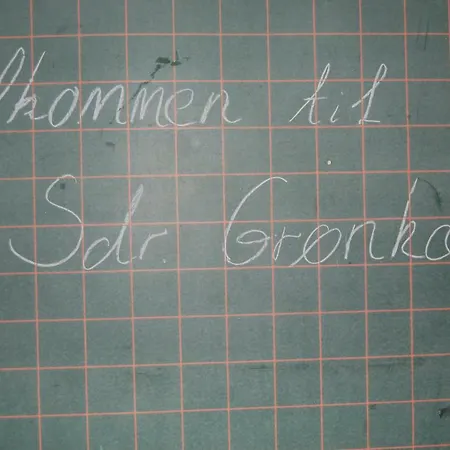 lkommen til
Sdr. Grønko